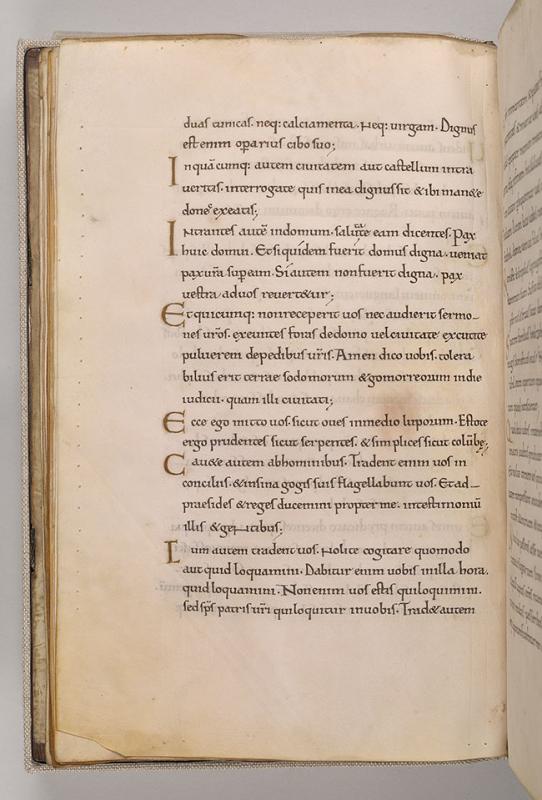 duas tunicas. neq: calciamenta. Neq: uirgam. Dignus
est enim operarius cibo suo;
In quācumq: autem ciuitatem aut castellum intra
ueritis. interrogate quis in ea dignus sit & ibi man&e
donec exeatis;
Intrantes autē in domum. salutate eam dicentes. Pax
huic domui. Et si quidem fuerit domus digna. ueniat
pax urā sup eam. Si autem non fuerit digna. pax
uestra ad uos reuert&ur;
Et quicumq: non receperit uos nec audierit sermo_
nes urōs. exeuntes foras de domo uel ciuitate excutite
puluerem de pedibus urīs. Amen dico uobis. tolera
bilius erit terrae sodomorum & gomorreorum in die
iudicii. quam illi ciuitati;
Ecce ego mitto uos. sicut oues in medio luporum. Estote
ergo prudentes sicut serpentes. & simplices sicut colūbę;
Cau&e autem ab hominibus. Tradent enim uos in
conciliis. & in sina gogis suis flagellabunt uos. Et ad_
praesides & reges ducemini propter me. in testimoniū
illis & gentibus;
Cum autem tradent uos. Nolite cogitare quomodo
aut quid loquamini. Dabitur enim uobis in illa hora.
quid loquamini. Non enim uos estis qui loquimini.
sed sps patris urī qui loquitur in uobis. Trad& autem